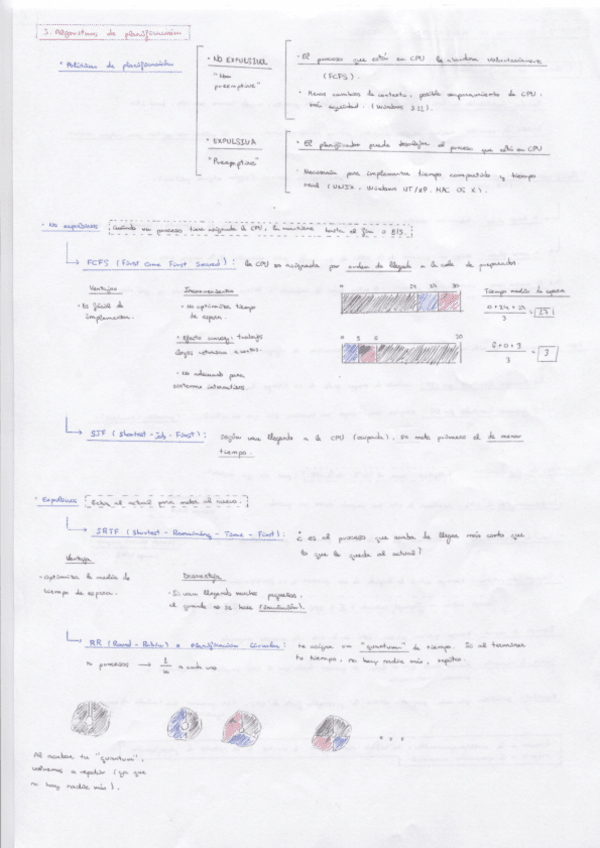 3. Algoritmos de planificación
• Políticas de planificación
• NO EXPULSIVA
"Non preemptive"
• El proceso que está en CPU la abandona voluntariamente
(FCFS).
• Menos cambios de contexto, posible acaparamiento de CPU.
(Windows 3.11).
• EXPULSIVA
"Preemptive"
• El planificador puede desalojar al proceso que está en CPU
• Necesaria para implementar tiempo compartido y tiempo
real (UNIX, Windows NT/XP, MAC OS X).
• No expulsivas Cuando un proceso tiene asignada la CPU, la mantiene hasta el fin o E/S.
FCFS (First Come First Served): la CPU es asignada por orden de llegada a la cola de preparados.
Ventajas
• Es fácil de
implementar.
Inconvenientes
• No optimiza tiempo
de espera.
• Efecto convoy: trabajos
largos retrasan a cortos.
• No adecuado para
sistemas interactivos.
0 24 27 30
Tiempo medio de espera
0+24+27
3
= 17
0 3 6 30
6+0+3
3
= 3
SJF (Shortest-Job-First): según van llegando a la CPU (ocupada), se mete primero el de menor
tiempo.
• Expulsivas Echa al actual para meter al nuevo.
SRTF (Shortest-Remaining-Time-First): ¿es el proceso que acaba de llegar más corto que
lo que le queda al actual?
Ventaja
• Optimiza la media de
tiempo de espera.
Desventaja
• Si van llegando muchos pequeños,
el grande no se hace (inanición).
RR (Round-Robin) o Planificación Circular: se asigna un "quantum" de tiempo. Si al terminar
tu tiempo, no hay nadie más, repites.
n procesos → 1/n a cada uno.
...
Al acabar tu "quantum",
volvemos a repetir (ya que
no hay nadie más).